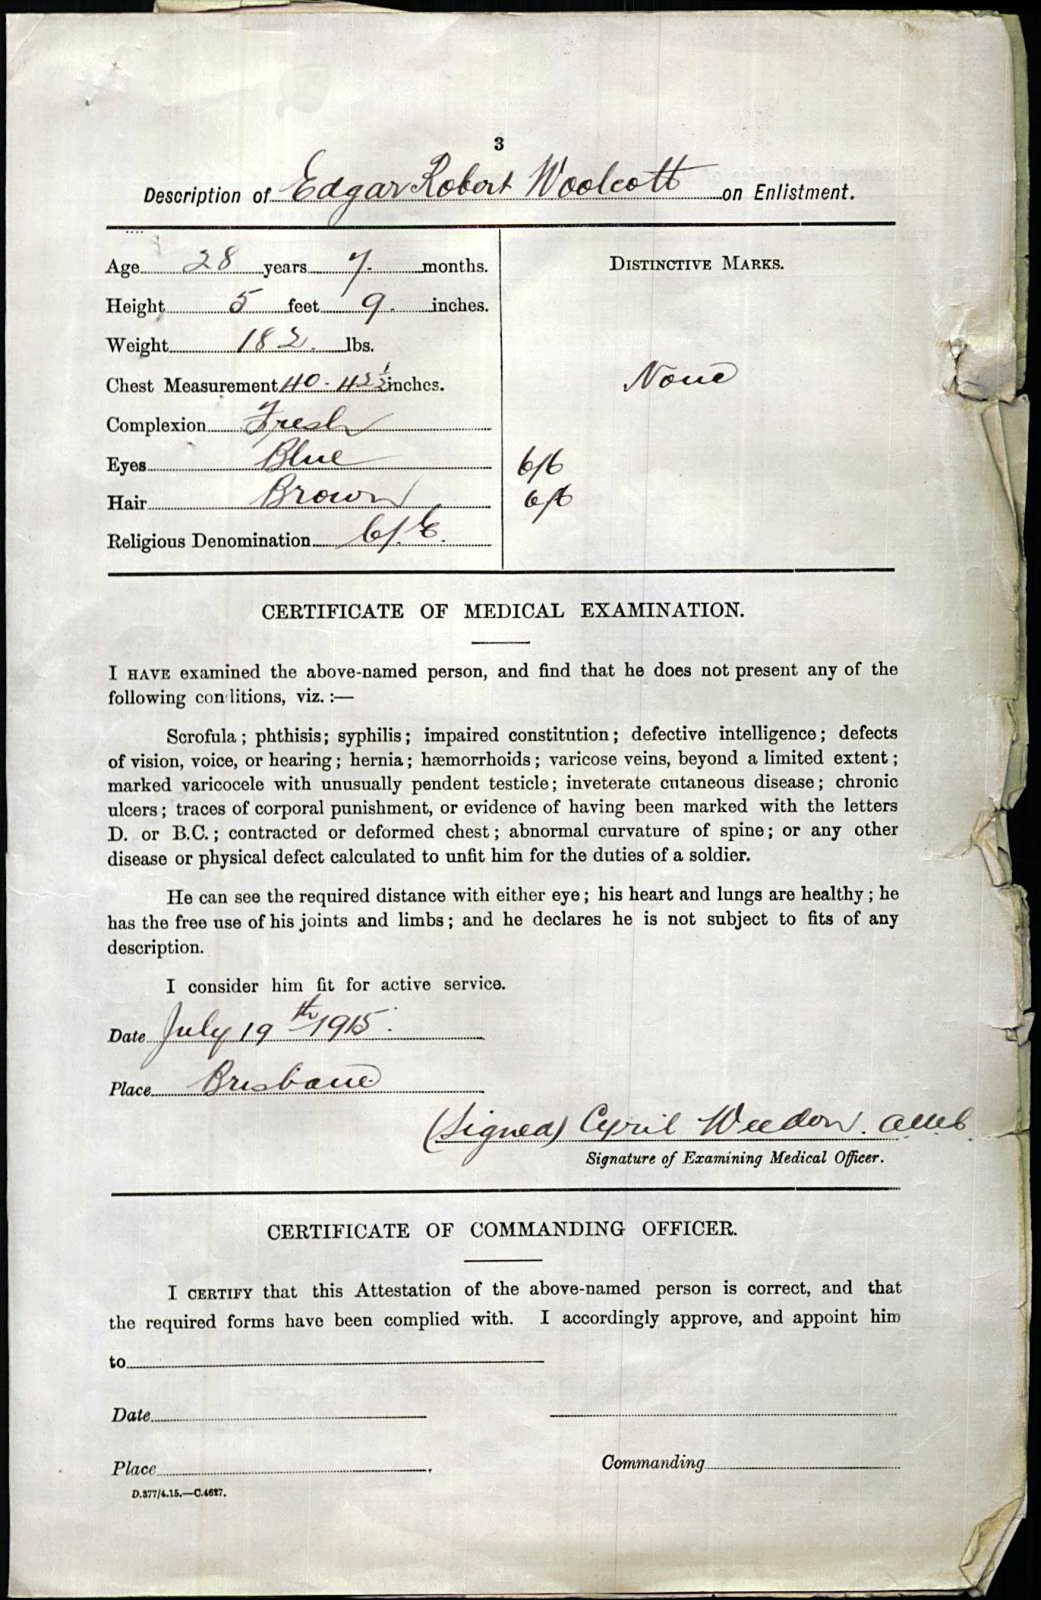 3
Description of Edgar Robert Woolcott on Enlistment.
Age 28 years 7. months.
Height 5 feet 9. inches.
Weight 182. lbs.
Chest Measurement 40-42½ inches.
Complexion Fresh
Eyes Blue
Hair Brown
Religious Denomination C/. E.
DISTINCTIVE MARKS.
None
6/6
6/6
CERTIFICATE OF MEDICAL EXAMINATION.
I HAVE examined the above-named person, and find that he does not present any of the
following conditions, viz. :—
Scrofula ; phthisis ; syphilis ; impaired constitution ; defective intelligence ; defects
of vision, voice, or hearing ; hernia ; hæmorrhoids ; varicose veins, beyond a limited extent ;
marked varicocele with unusually pendent testicle ; inveterate cutaneous disease ; chronic
ulcers ; traces of corporal punishment, or evidence of having been marked with the letters
D. or B.C. ; contracted or deformed chest ; abnormal curvature of spine ; or any other
disease or physical defect calculated to unfit him for the duties of a soldier.
He can see the required distance with either eye ; his heart and lungs are healthy ; he
has the free use of his joints and limbs ; and he declares he is not subject to fits of any
description.
I consider him fit for active service.
Date July 19th 1915.
Place Brisbane
(Signed) Cyril Weedon. AMC
Signature of Examining Medical Officer.
CERTIFICATE OF COMMANDING OFFICER.
I CERTIFY that this Attestation of the above-named person is correct, and that
the required forms have been complied with. I accordingly approve, and appoint him
to
Date
Place
Commanding
D.377/4.15.—C.4627.